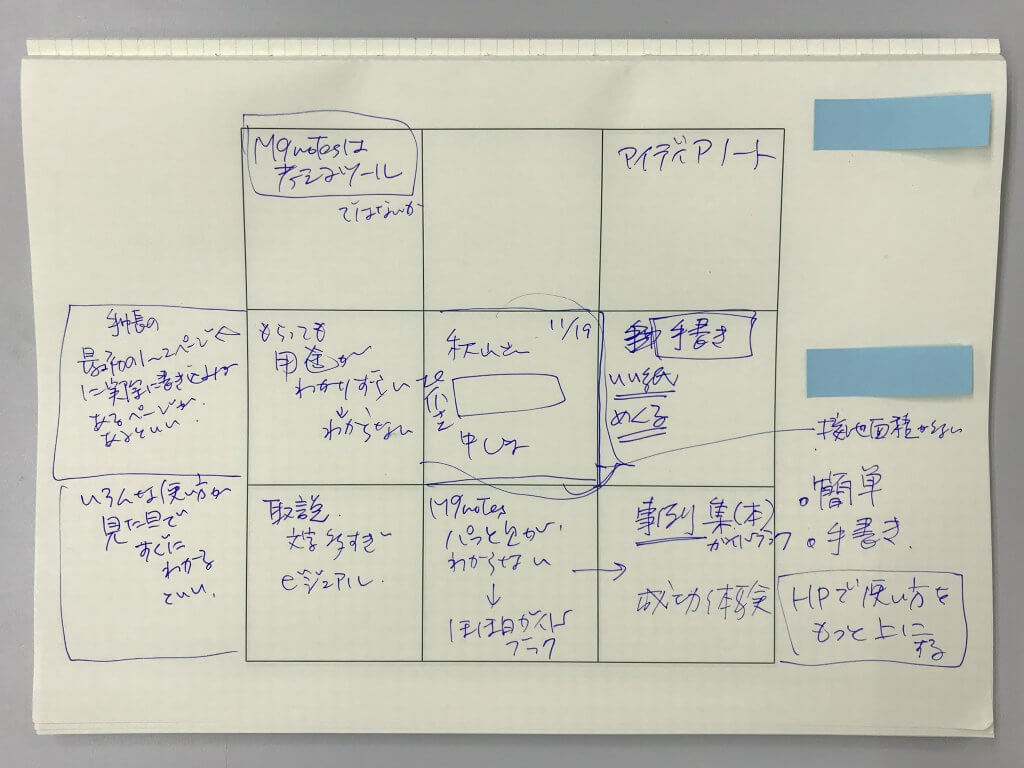 M9notesは
考えるツール
ではないか
アイディアノート
手帳の
最初の1〜2ページ
に実際に書き込みが
あるページが
あるといい.
もらっても
用途が
わかりずらい
わからない
11/19
秋山さん
手書き
いい紙
めくる
接地面積が
簡単
手書き
いろんな使い方が
見た目で
すぐに
わかると
いい.
取説.
文字多すぎ
ビジュアル.
M9notes
パッと出が,
わからない
ほぼ日ガイド
ブック
事例集(本)
ガイドブック
成功体験
HPで使い方を
もっと上に
する